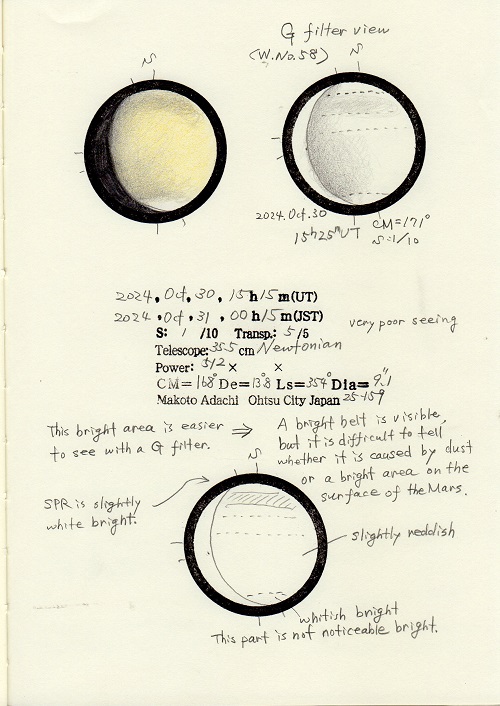 G filter view
(W.No.58)
S
S
2024.Oct.30
15h25mUT
CM=171°
S:1/10
2024, Oct, 30, 15h15m(UT)
2024, Oct, 31, 00h15m(JST)
S: 1 /10 Transp.: 5/5
very poor seeing
Telescope: 35.5 cm Newtonian
Power: 512× ×
CM=168° De=13.8 Ls=354° Dia=9."1
Makoto Adachi Ohtsu City Japan 25-159
This bright area is easier
to see with a G filter.
⇒
A bright belt is visible,
but it is difficult to tell
whether it is caused by dust
or a bright area on the
surface of the Mars.
S
SPR is slightly
white bright.
slightly reddish
whitish bright
This part is not noticeable bright.